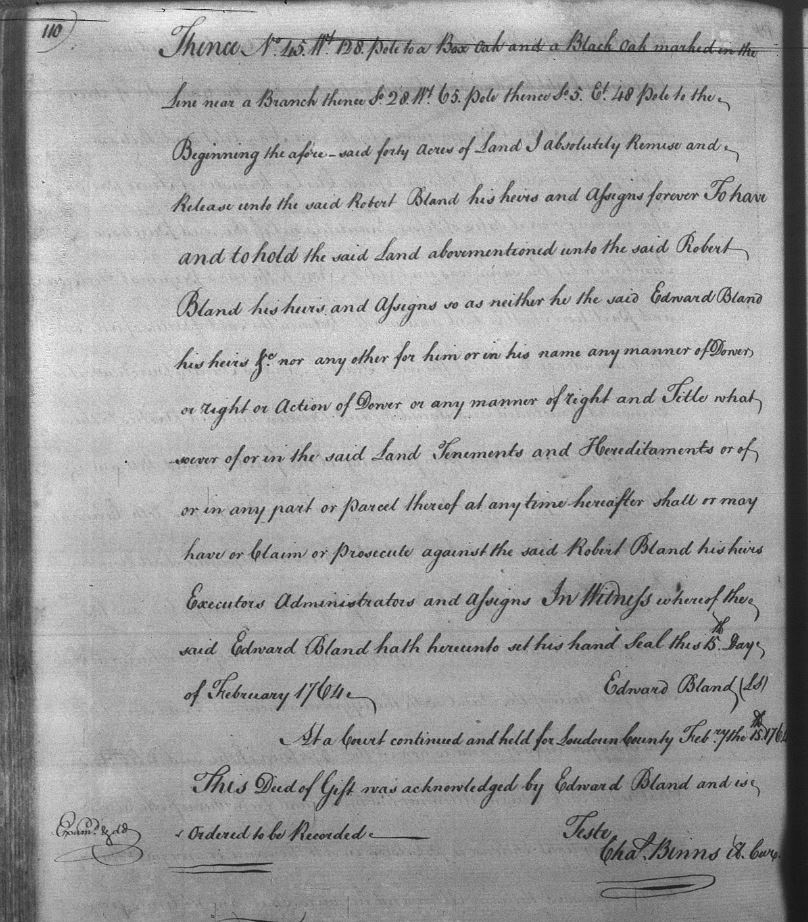 110
Thence No. 45. Wt. 128 pole to a Box Oak and a Black Oak marked in the
Line near a Branch thence So 28 Wt. 65. pole thence So 5. Et. 48 pole to the
Beginning the afore-said forty Acres of Land I absolutely Remise and
Release unto the said Robert Bland his heirs and Assigns forever To have
and to hold the said Land abovementioned unto the said Robert
Bland his heirs and Assigns so as neither he the said Edward Bland
his heirs &c. nor any other for him or in his name any manner of Dower
or right or Action of Dower or any manner of right and Title what
soever of or in the said Land Tenements and Hereditaments or of
or in any part or parcel thereof at any time hereafter shall or may
have or Claim or prosecute against the said Robert Bland his heirs
Executors Administrators and Assigns In Witness whereof the
said Edward Bland hath hereunto set his hand Seal this 15th. Day
of February 1764
Edward Bland (LS)
At a Court continued and held for Loudoun County Feb.ry the 15th 1764
This Deed of Gift was acknowledged by Edward Bland and is
Ordered to be Recorded
Examd. & dd
Teste
Chas. Binns Cl. Cur.